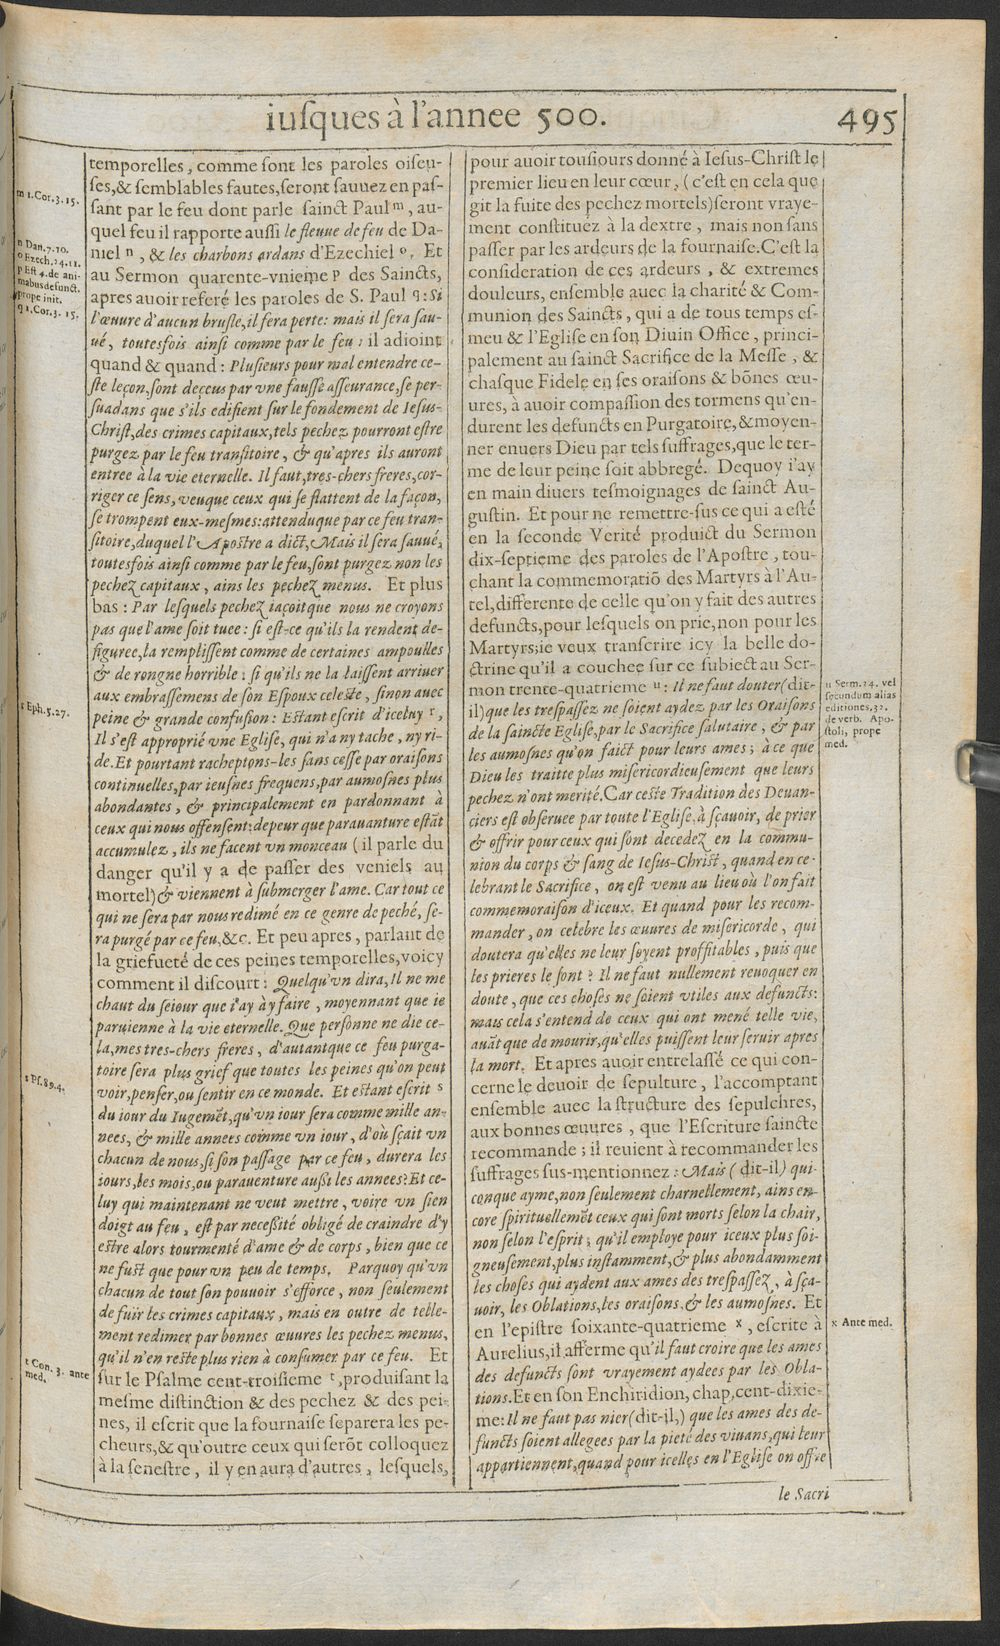 iuſques à l'annee 500.
495
temporelles, comme ſont les paroles oiſeu-
ſes,& ſemblables fautes,ſeront ſauuez en paſ-
ſant par le feu dont parle ſainct Paul m, au-
quel feu il rapporte auſſi le fleuue de feu de Da-
niel n, & les charbons ardans d'Ezechiel o. Et
au Sermon quarente-vnieme p des Saincts,
apres auoir referé les paroles de S. Paul q: Si
l'œuure d'aucun bruſle,il fera perte: mais il ſera ſau-
ué, toutesfois ainſi comme par le feu: il adioint
quand & quand: Pluſieurs pour mal entendre ce-
ſte leçon,ſont deceus par vne fauſſe aſſeurance,ſe per-
ſuadans que s'ils edifient ſur le fondement de Ieſus-
Chriſt,des crimes capitaux,tels pechez pourront eſtre
purgez par le feu tranſitoire, & qu'apres ils auront
entree à la vie eternelle. Il faut,tres-chers freres,cor-
riger ce ſens, veuque ceux qui ſe flattent de la façon,
ſe trompent eux-meſmes:attenduque par ce feu tran-
ſitoire,duquel l'Apoſtre a dict, Mais il ſera ſauué,
toutesfois ainſi comme par le feu,ſont purgez non les
pechez capitaux, ains les pechez menus. Et plus
bas: Par leſquels pechez iaçoitque nous ne croyons
pas que l'ame ſoit tuee: ſi eſt-ce qu'ils la rendent de-
figuree,la rempliſſent comme de certaines ampoulles
& de rongne horrible: ſi qu'ils ne la laiſſent arriuer
aux embraſſemens de ſon Eſpoux celeſte, ſinon auec
peine & grande confuſion: Eſtant eſcrit d'iceluy r,
Il s'eſt approprié vne Egliſe, qui n'a ny tache, ny ri-
de.Et pourtant racheptons-les ſans ceſſe par oraiſons
continuelles,par ieuſnes frequens,par aumoſnes plus
abondantes, & principalement en pardonnant à
ceux qui nous offenſent:depeur que parauanture eſtāt
accumulez, ils ne facent vn monceau (il parle du
danger qu'il y a de paſſer des veniels au
mortel) & viennent à ſubmerger l'ame. Car tout ce
qui ne ſera par nous redimé en ce genre de peché, ſe-
ra purgé par ce feu,&c. Et peu apres, parlant de
la griefueté de ces peines temporelles,voicy
comment il diſcourt: Quelqu'vn dira,Il ne me
chaut du ſeiour que i'ay à y faire, moyennant que ie
paruienne à la vie eternelle. Que perſonne ne die ce-
la,mes tres-chers freres, d'autantque ce feu purga-
toire ſera plus grief que toutes les peines qu'on peut
voir,penſer,ou ſentir en ce monde. Et eſtant eſcrit s
du iour du Iugemēt,qu'vn iour ſera comme mille an-
nees, & mille annees comme vn iour, d'où ſçait vn
chacun de nous,ſi ſon paſſage par ce feu, durera les
iours,les mois,ou parauenture auſsi les annees? Et ce-
luy qui maintenant ne veut mettre, voire vn ſien
doigt au feu, eſt par neceſsité obligé de craindre d'y
eſtre alors tourmenté d'ame & de corps, bien que ce
ne fuſt que pour vn peu de temps. Parquoy qu'vn
chacun de tout ſon pouuoir s'efforce, non ſeulement
de fuir les crimes capitaux, mais en outre de telle-
ment redimer par bonnes œuures les pechez menus,
qu'il n'en reſte plus rien à conſumer par ce feu. Et
ſur le Pſalme cent-troiſieme t,produiſant la
meſme diſtinction & des pechez & des pei-
nes, il eſcrit que la fournaiſe ſeparera les pe-
cheurs,& qu'outre ceux qui ſerōt colloquez
à la ſeneſtre, il y en aura d'autres, leſquels,
m 1.Cor.3.15.
n Dan.7.10.
o Ezech.24.11.
p Eſt 4.de ani-
mabus defunct.
prope init.
q 1.Cor.3.15.
r Eph.5.27.
s Pſ.89.4.
t Con. 3. ante
med.
pour auoir touſiours donné à Ieſus-Chriſt le
premier lieu en leur cœur, (c'eſt en cela que
git la fuite des pechez mortels)ſeront vraye-
ment conſtituez à la dextre, mais non ſans
paſſer par les ardeurs de la fournaiſe.C'eſt la
conſideration de ces ardeurs, & extremes
douleurs, enſemble auec la charité & Com-
munion des Saincts, qui a de tous temps eſ-
meu & l'Egliſe en ſon Diuin Office, princi-
palement au ſainct Sacrifice de la Meſſe, &
chaſque Fidele en ſes oraiſons & bōnes œu-
ures, à auoir compaſſion des tormens qu'en-
durent les defuncts en Purgatoire,&moyen-
ner enuers Dieu par tels ſuffrages,que le ter-
me de leur peine ſoit abbregé. Dequoy i'ay
en main diuers teſmoignages de ſainct Au-
guſtin. Et pour ne remettre-ſus ce qui a eſté
en la ſeconde Verité produict du Sermon
dix-ſeptieme des paroles de l'Apoſtre, tou-
chant la commemoratiō des Martyrs à l'Au-
tel,differente de celle qu'on y fait des autres
defuncts,pour leſquels on prie,non pour les
Martyrs;ie veux tranſcrire icy la belle do-
ctrine qu'il a couchee ſur ce ſubiect au Ser-
mon trente-quatrieme u: Il ne faut douter(dit-
il)que les treſpaſſez ne ſoient aydez par les Oraiſons
de la ſaincte Egliſe,par le Sacrifice ſalutaire, & par
les aumoſnes qu'on faict pour leurs ames; à ce que
Dieu les traitte plus miſericordieuſement que leurs
pechez n'ont merité.Car ceſte Tradition des Deuan-
ciers eſt obſeruee par toute l'Egliſe,à ſçauoir, de prier
& offrir pour ceux qui ſont decedez en la commu-
nion du corps & ſang de Ieſus-Chriſt, quand en ce-
lebrant le Sacrifice, on eſt venu au lieu où l'on fait
commemoraiſon d'iceux. Et quand pour les recom-
mander, on celebre les œuures de miſericorde, qui
doutera qu'elles ne leur ſoyent proffitables, puis que
les prieres le ſont? Il ne faut nullement reuoquer en
doute, que ces choſes ne ſoient vtiles aux defuncts:
mais cela s'entend de ceux qui ont mené telle vie,
auāt que de mourir,qu'elles puiſſent leur ſeruir apres
la mort. Et apres auoir entrelaſſé ce qui con-
cerne le deuoir de ſepulture, l'accomptant
enſemble auec la ſtructure des ſepulchres,
aux bonnes œuures, que l'Eſcriture ſaincte
recommande; il reuient à recommander les
ſuffrages ſus-mentionnez: Mais (dit-il) qui-
conque ayme,non ſeulement charnellement, ains en-
core ſpirituellemēt ceux qui ſont morts ſelon la chair,
non ſelon l'eſprit; qu'il employe pour iceux plus ſoi-
gneuſement,plus inſtamment,& plus abondamment
les choſes qui aydent aux ames des treſpaſſez, à ſça-
uoir, les Oblations,les oraiſons,& les aumoſnes. Et
en l'epiſtre ſoixante-quatrieme x, eſcrite à
Aurelius,il afferme qu'il faut croire que les ames
des defuncts ſont vrayement aydees par les Obla-
tions.Et en ſon Enchiridion, chap,cent-dixie-
me: Il ne faut pas nier (dit-il,) que les ames des de-
functs ſoient allegees par la pieté des viuans,qui leur
appartiennent,quand pour icelles en l'Egliſe on offre
u Serm.24. vel
ſecundum alias
editiones,32.
de verb. Apo-
ſtoli, prope
med.
x Ante med.
le Sacri